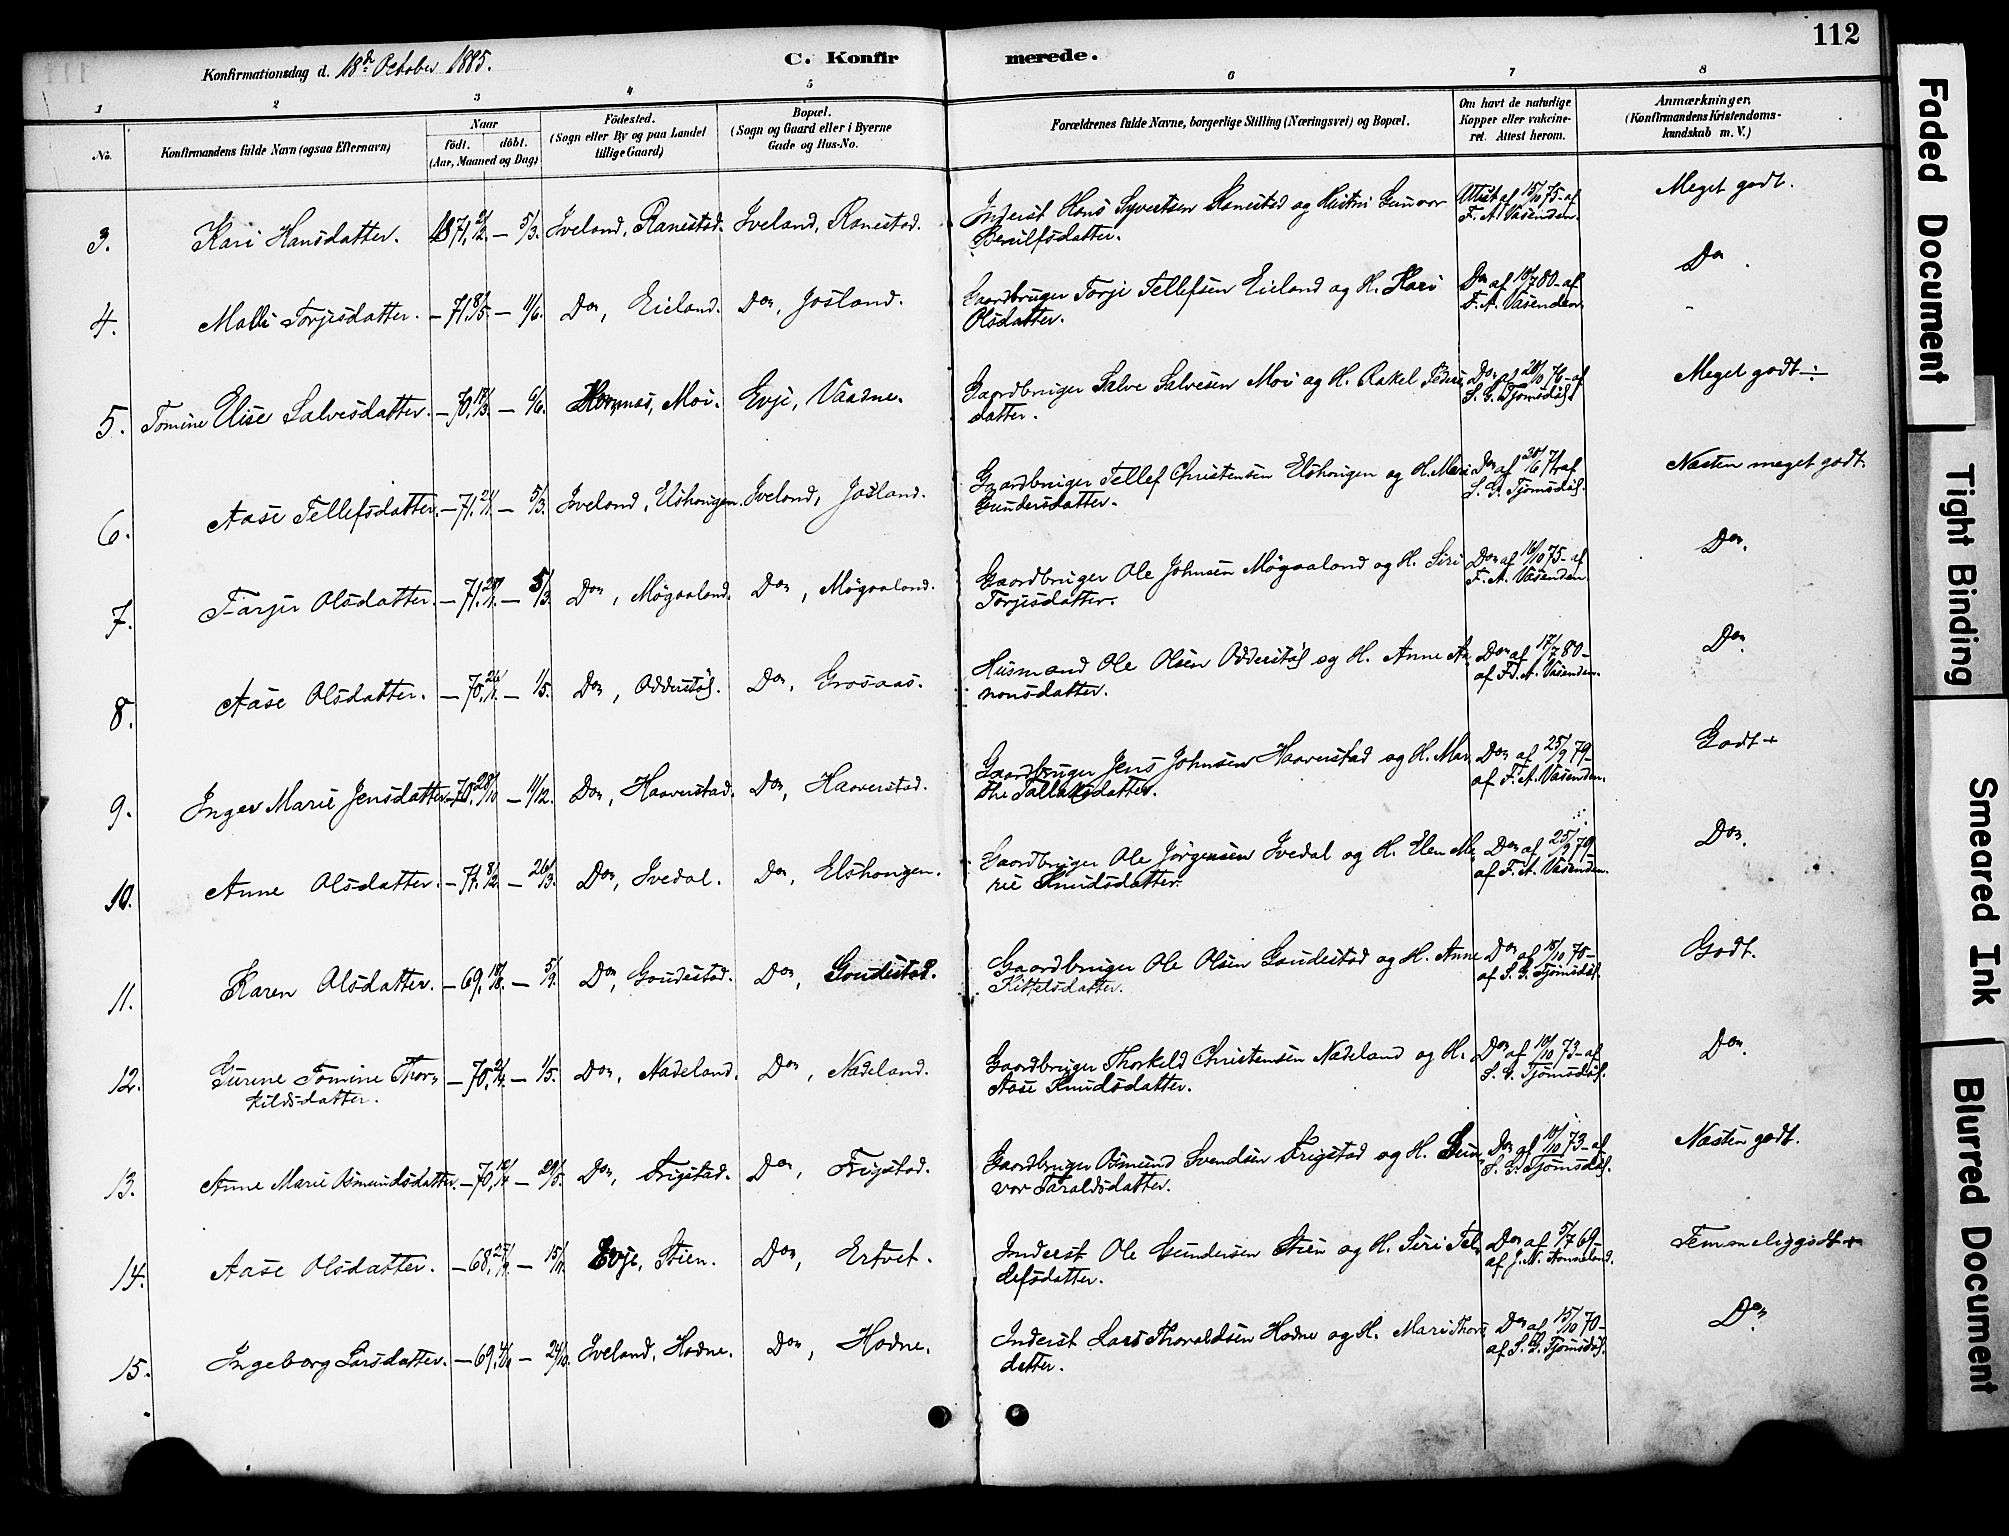 112
Konfirmationsdag d. 18de October 1885.
C. Konfirmerede.
1 2 3 4 5 6 7 8
No.
Konfirmandens fulde Navn (ogsaa Efternavn)
Naar
födt. döbt.
(Aar, Maaned og Dag)
Födested.
(Sogn eller By og paa Landet
tillige Gaard)
Bopæl.
(Sogn og Gaard eller i Byerne
Gade og Hus-No.
Forældrenes fulde Navne, borgerlige Stilling (Næringsvei) og Bopæl.
Om havt de naturlige
Kopper eller vakcine-
ret. Attest herom.
Anmærkninger,
(Konfirmandens Kristendoms-
kundskab m. V.)
3. Kari Hansdatter. 1871, 2/2. — 5/3. Iveland, Ranestad. Iveland, Ranestad. Inderst Hans Syvertsen Ranestad og Hustru Gunvor Attest af 15/10 75 - af Meget godt.
Berulfsdatter. F. A. Vasenden.
4. Malli Torjesdatter. — 71, 8/5. — 11/6. Do, Eieland. Do, Josland. Gaardbruger Torje Tellefsen Eieland og H. Kari Do af 19/7 80 - af Do.
Olsdatter. F. A. Vasenden.
5. Tomine Elise Salvesdatter. — 70, 17/3. — 6/6. Hornnes, Moi. Evje, Vaadne. Gaardbruger Salve Salvesen Moi og H. Rakel Peders Do af 20/10 76 - af Meget godt ÷
datter. S. G. Tjomsdal.
6. Aase Tellefsdatter. — 71, 2/1. — 5/3. Iveland, Elshougen. Iveland, Josland. Gaardbruger Tellef Christensen Elshougen og H. Mari Do af 20/6 71 af Næsten meget godt.
Gundersdatter. S. G. Tjomsdal.
7. Tarjer Olsdatter. — 71, 28/1. — 5/3. Do, Møgaaland. Do, Møgaaland. Gaardbruger Ole Johnsen Møgaaland og H. Siri Do af 16/10 75 - af Do.
Torjesdatter. F. A. Vasenden
8. Aase Olsdatter. — 70, — 1/5. Do, Odderstøl. Do, Grosaas. Husmand Ole Olsen Odderstøl og H. Anne Aa Do af 17/7 80 - Do.
nonsdatter. af F. A. Vasenden.
9. Inger Marie Jensdatter. — 70, 28/10 — 11/12. Do, Haaverstad. Do, Haaverstad. Gaardbruger Jens Johnsen Haaverstad og H. Mar Do af 25/9 79 - Godt +
the Tallaksdatter. af F. A. Vasenden.
10. Anne Olsdatter. — 71, 8/2. — 26/3. Do, Ivedal. Do, Elshougen. Gaardbruger Ole Jørgensen Ivedal og H. Elen Ma Do af 25/9 79 Do.
rie Knudsdatter. af F. A. Vasenden.
11. Karen Olsdatter. — 69, 18/8. — 5/9. Do, Goudestad. Do, Goudestad. Gaardbruger Ole Olsen Goudestad og H. Anne Do af 15/10 70 - Godt.
Kittelsdatter. af S. G. Tjomsdal.
12. Gurine Tomine Thor — 70, — 1/5. Do, Nadeland. Do, Nadeland. Gaardbruger Thorkeld Christensen Nadeland og H. Do af 10/10 73 - af Do.
kildsdatter. Aase Knudsdatter. S. G. Tjomsdal.
13. Anne Marie Osmundsdatter. — 70, 12/4 — 29/5. Do, Frigstad. Do, Frigstad. Gaardbruger Osmund Svendsen Frigstad og H. Gun Do af 10/10 73 - af Næsten godt.
vor Taraldsdatter. S. G. Tjomsdal.
14. Aase Olsdatter. — 68, 25/9. — 15/11. Evje, Stien. Do, Ertvet. Inderst Ole Gundersen Stien og H. Siri Tel Do af 5/7 69 - Temmelig godt +
lefsdatter. af J. N. Aonneland.
15. Ingeborg Larsdatter. — 69, — 24/10. Iveland, Hodne. Do, Hodne. Inderst Lars Thoraldsen Hodne og H. Mari Thors Do af 15/10 70 - Do.
datter. af S. G. Tjomsdal.
Faded Document
Tight Binding
Smeared Ink
Blurred Document